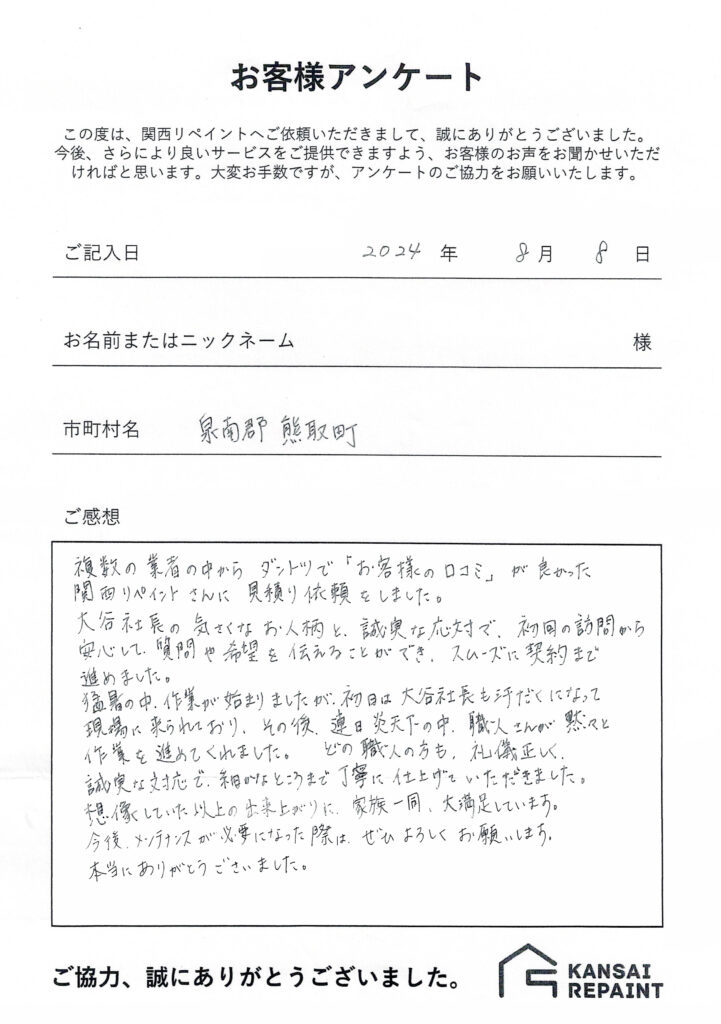 お客様アンケート
この度は、関西リペイントへご依頼いただきまして、誠にありがとうございました。
今後、さらにより良いサービスをご提供できますよう、お客様のお声をお聞かせいただ
ければと思います。大変お手数ですが、アンケートのご協力をお願いいたします。
ご記入日 2024 年 8 月 8 日
お名前またはニックネーム 様
市町村名 泉南郡 熊取町
ご感想
複数の業者の中から ダントツで「お客様の口コミ」が良かった
関西リペイントさんに 見積り依頼をしました。
大谷社長の 気さくなお人柄と、誠実な応対で、初回の訪問から
安心して、質問や希望を伝えることができ、スムーズに契約まで
進めました。
猛暑の中、作業が始まりましたが、初日は大谷社長も汗だくになって
現場に来られており、その後、連日炎天下の中、職人さんが黙々と
作業を進めてくれました。 どの職人の方も、礼儀正しく、
誠実な対応で、細かなところまで丁寧に仕上げていただきました。
想像していた以上の出来上がりに、家族一同、大満足しています。
今後、メンテナンスが必要になった際は、ぜひよろしくお願いします。
本当にありがとうございました。
ご協力、誠にありがとうございました。
KANSAI
REPAINT